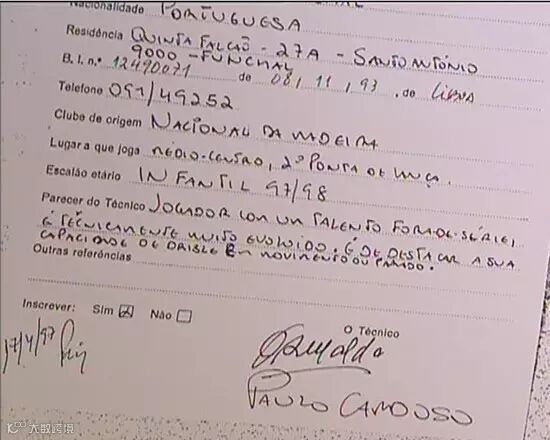 Nacionalidade PORTUGUESA
Residência QUINTA FALCÃO - 27A - SANTO ANTÓNIO
9000 - FUNCHAL
B. I. n.º 12490071 de 08, 11, 93, de Lisboa
Telefone 091/49252
Clube de origem NACIONAL DA MADEIRA
Lugar a que joga MÉDIO-CENTRO, 2º PONTA DE LANÇA.
Escalão etário INFANTIL 97/98
Parecer do Técnico JOGADOR COM UM TALENTO FORA-DE-SÉRIE,
E TÉCNICAMENTE MUITO EVOLUIDO. É DE DESTACAR A SUA
CAPACIDADE DE DRIBLE EM MOVIMENTO OU PARADO.
Outras referências
Inscrever: Sim Não
17/4/97
O Técnico
Osvaldo
PAULO CARDOSO
大数跨境